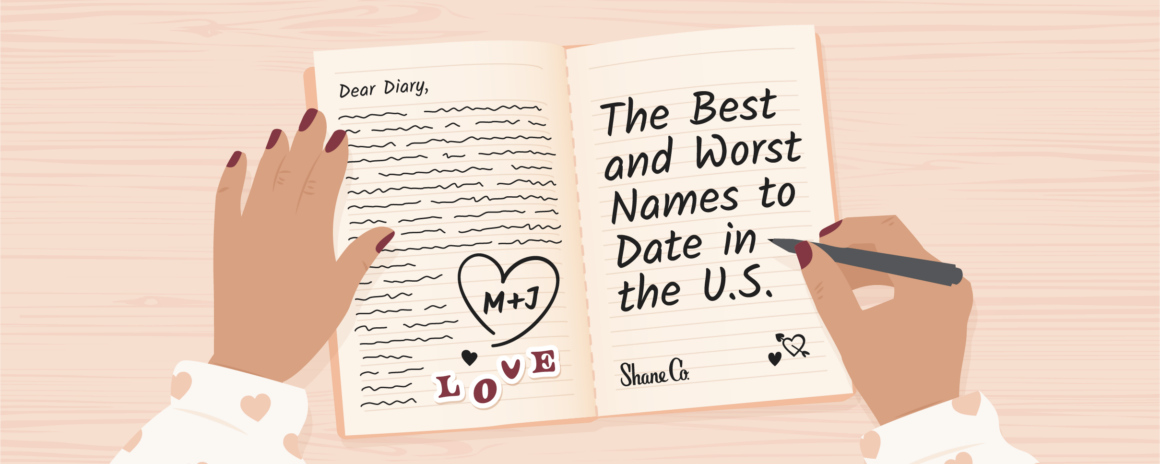 Dear Diary,
M+J
LOVE
The Best
and Worst
Names to
Date in
the U.S.
Shane Co.